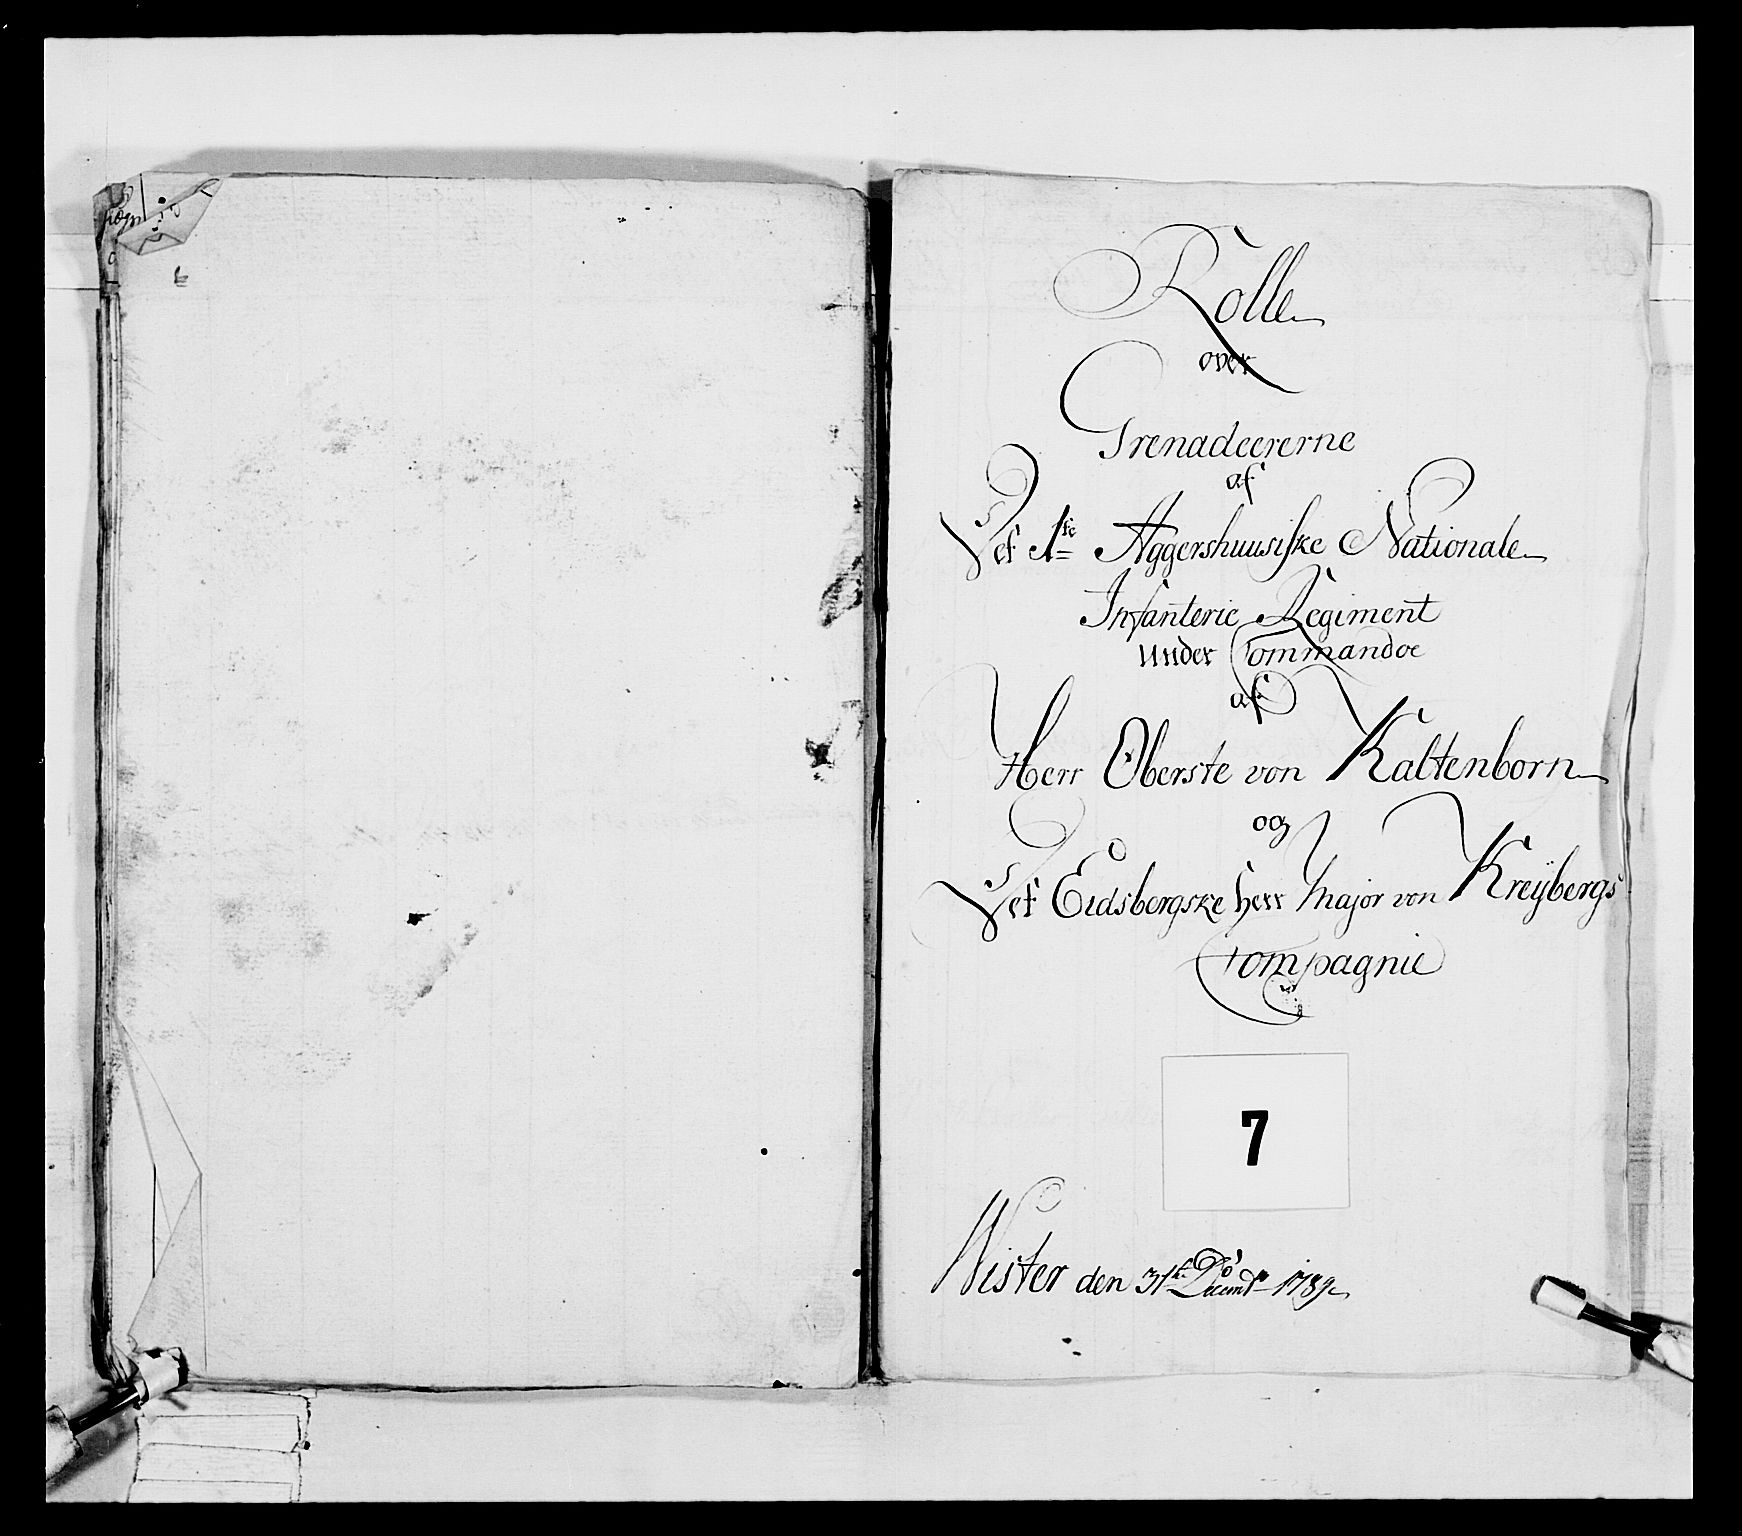 Rolle
over
Grenadeererne
af
Det 1te Aggershuusiske Nationale
Infanterie Regiment
under Commandoe
af
Herr Oberste von Kaltenborn
og
Det Eidsbergske Herr Major von Kreÿbergs
Compagnie
7
Wister den 31te Decembr 1789